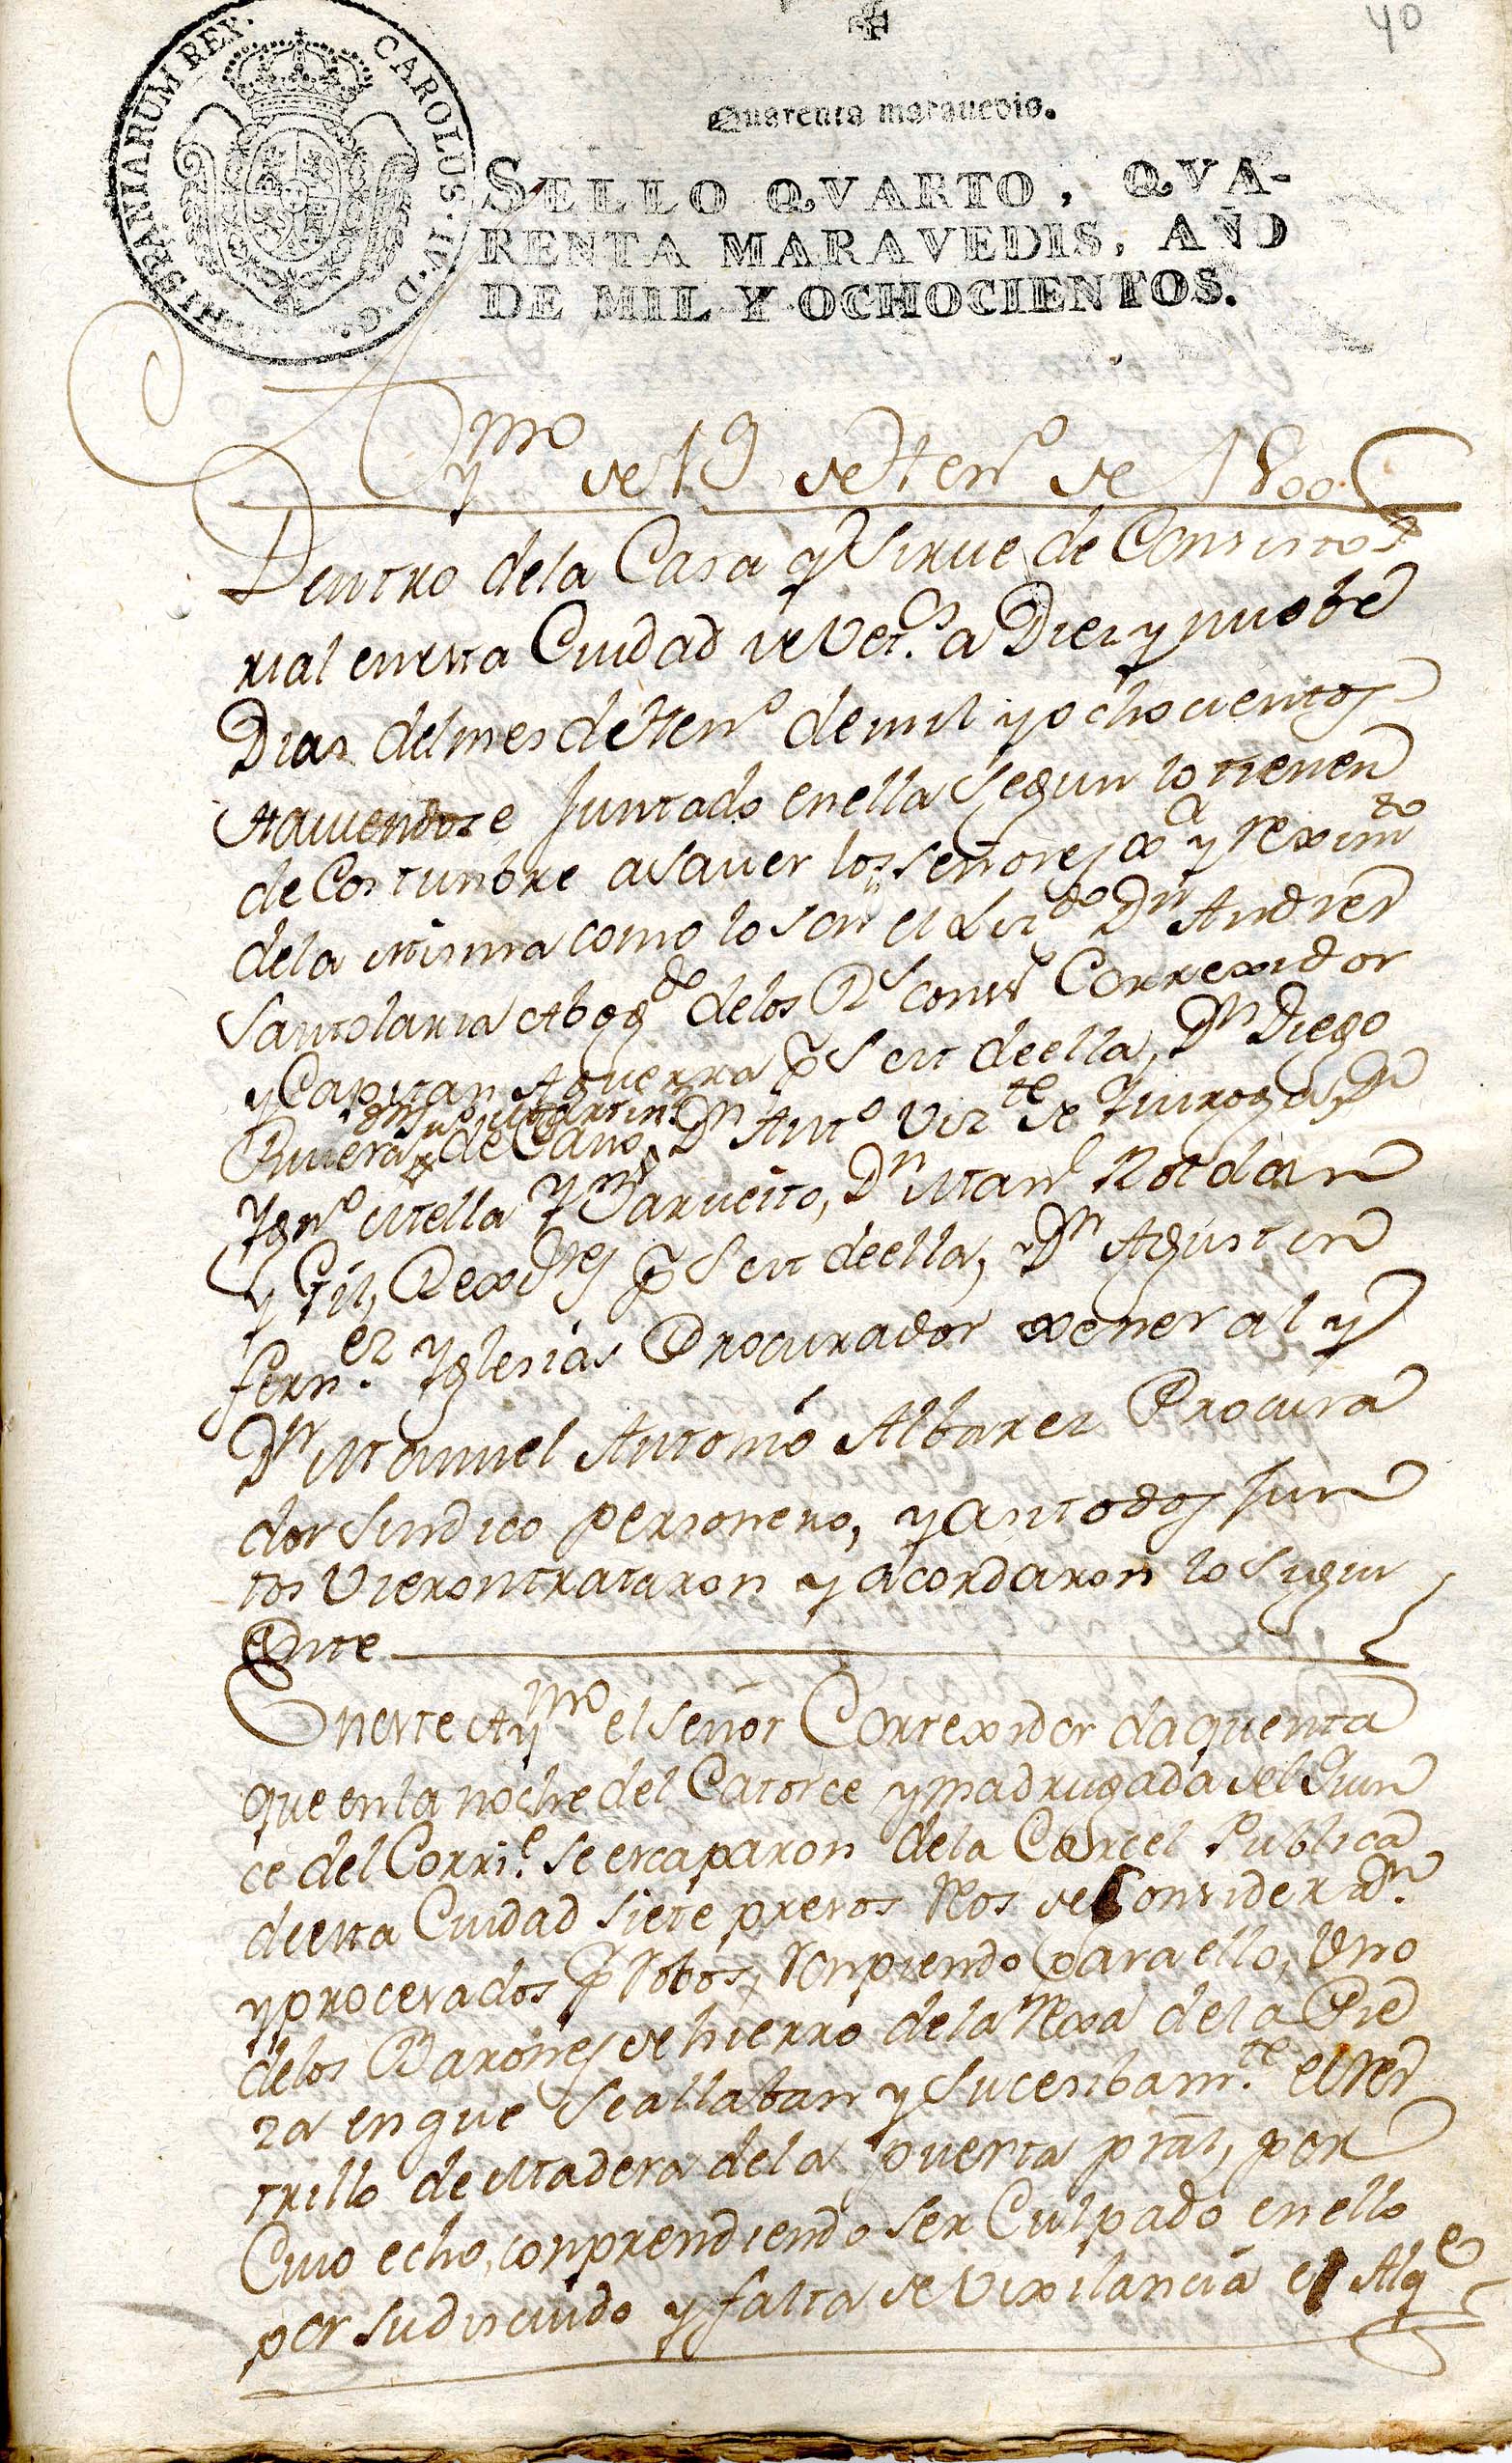 40
HISPANIARUM REX. CAROLUS. IV. D. G.
Quarenta maravedis.
SELLO QVARTO, QVA-
RENTA MARAVEDIS, AÑO
DE MIL Y OCHOCIENTOS.
Aymto de 19 de Stenro de 1800
Dentro dela Casa qe Sirve de Consisto
rial en esta Ciudad de Bets. a Diez y nuebe
Dias del mes de Stenro de mil y ochocientos
Haviendose Juntado en ella Segun lo tienen
de Costunbre asaver los señores xa y rexim.to
dela misma como lo son el Liz.do Dn Andres
Santolaria Abog.do delos Rs cons.s Correxidor
y Capitan Aguerra p.r S.M. de ella, Dn Diego
Rivera Dn Juan Martin
de Cano, Dn Ant.o Viz.te de Quiroga, Dn
Ign.o Mella y Barveito, Dn Man.l Roldan
y Gil, Rex.dres p.r S.M. de ella, Dn Agustin
fern.ez Yglesias Procurador xeneral y
Dn Manuel Antonio Albarez Procura
dor Sindico personero, y asi todos Jun
tos Vieron trataron y acordaron lo Sigui
ente
En este Aymto el señor Correxidor da quenta
que en la noche del Catorce y madrugada del Quin
ce del Corri.e se escaparon dela Carcel Publica
de esta Ciudad siete presos Reos de Considerazn.
y procesados p.r Robos, Ronpiendo para ello, Uno
delos Barones de hierro dela Rexa dela Pie
za en que se allaban y sucesibam.te el Ras
trillo de Madera dela puerta pral, por
Cuio echo, conprendiendo ser Culpado en ello
por su discuido y falta de Vixilancia el Alq.e